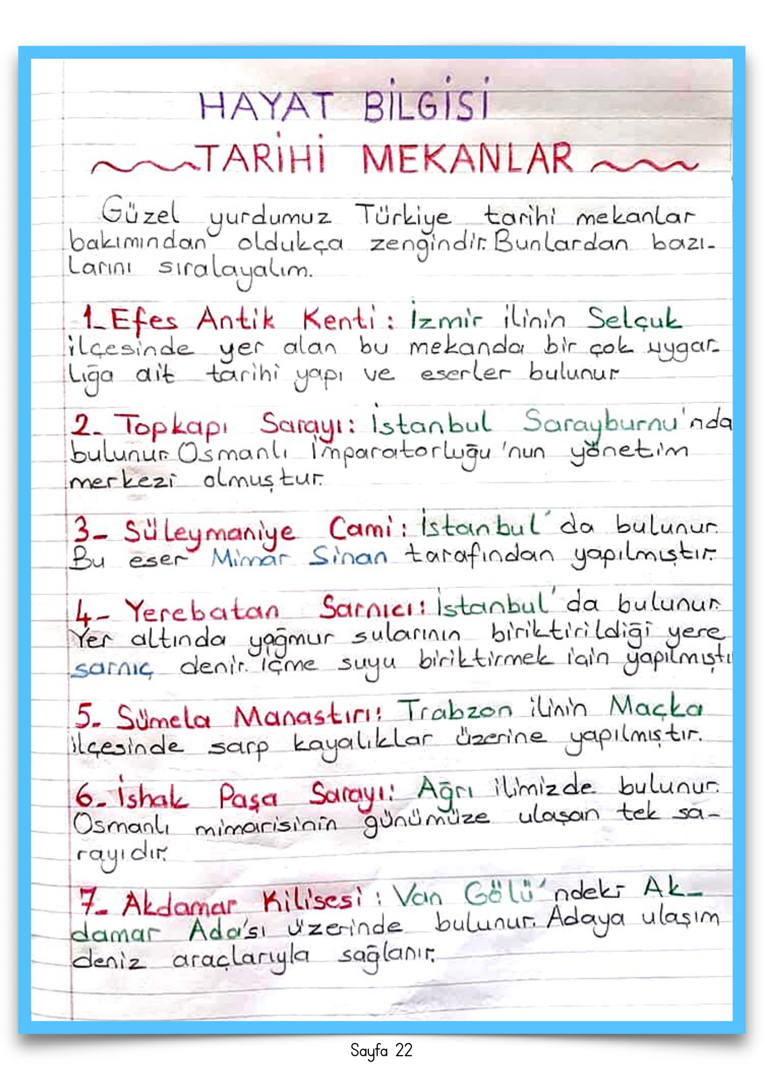 HAYAT BİLGİSİ
TARİHİ MEKANLAR
Güzel yurdumuz Türkiye tarihi mekanlar
bakımından oldukça zengindir. Bunlardan bazı-
larını sıralayalım.
1_Efes Antik Kenti: İzmir ilinin Selçuk
ilçesinde yer alan bu mekanda bir çok uygar-
lığa ait tarihi yapı ve eserler bulunur
2- Topkapı Sarayı: İstanbul Sarayburnu'nda
bulunur. Osmanlı İmparatorluğu'nun yönetim
merkezi olmuştur.
3- Süleymaniye Cami: İstanbul'da bulunur.
Bu eser Mimar Sinan tarafından yapılmıştır.
4- Yerebatan Sarnıcı: İstanbul'da bulunur.
Yer altında yağmur sularının biriktirildiği yere
sarnıç denir. İçme suyu biriktirmek için yapılmıştı
5- Sümela Manastırı: Trabzon ilinin Maçka
ilçesinde sarp kayalıklar üzerine yapılmıştır.
6- İshak Paşa Sarayı: Ağrı ilimizde bulunur.
Osmanlı mimarisinin günümüze ulaşan tek sa-
rayıdır.
7- Akdamar Kilisesi: Van Gölü'ndeki Ak-
damar Ada'sı üzerinde bulunur. Adaya ulaşım
deniz araçlarıyla sağlanır.
Sayfa 22